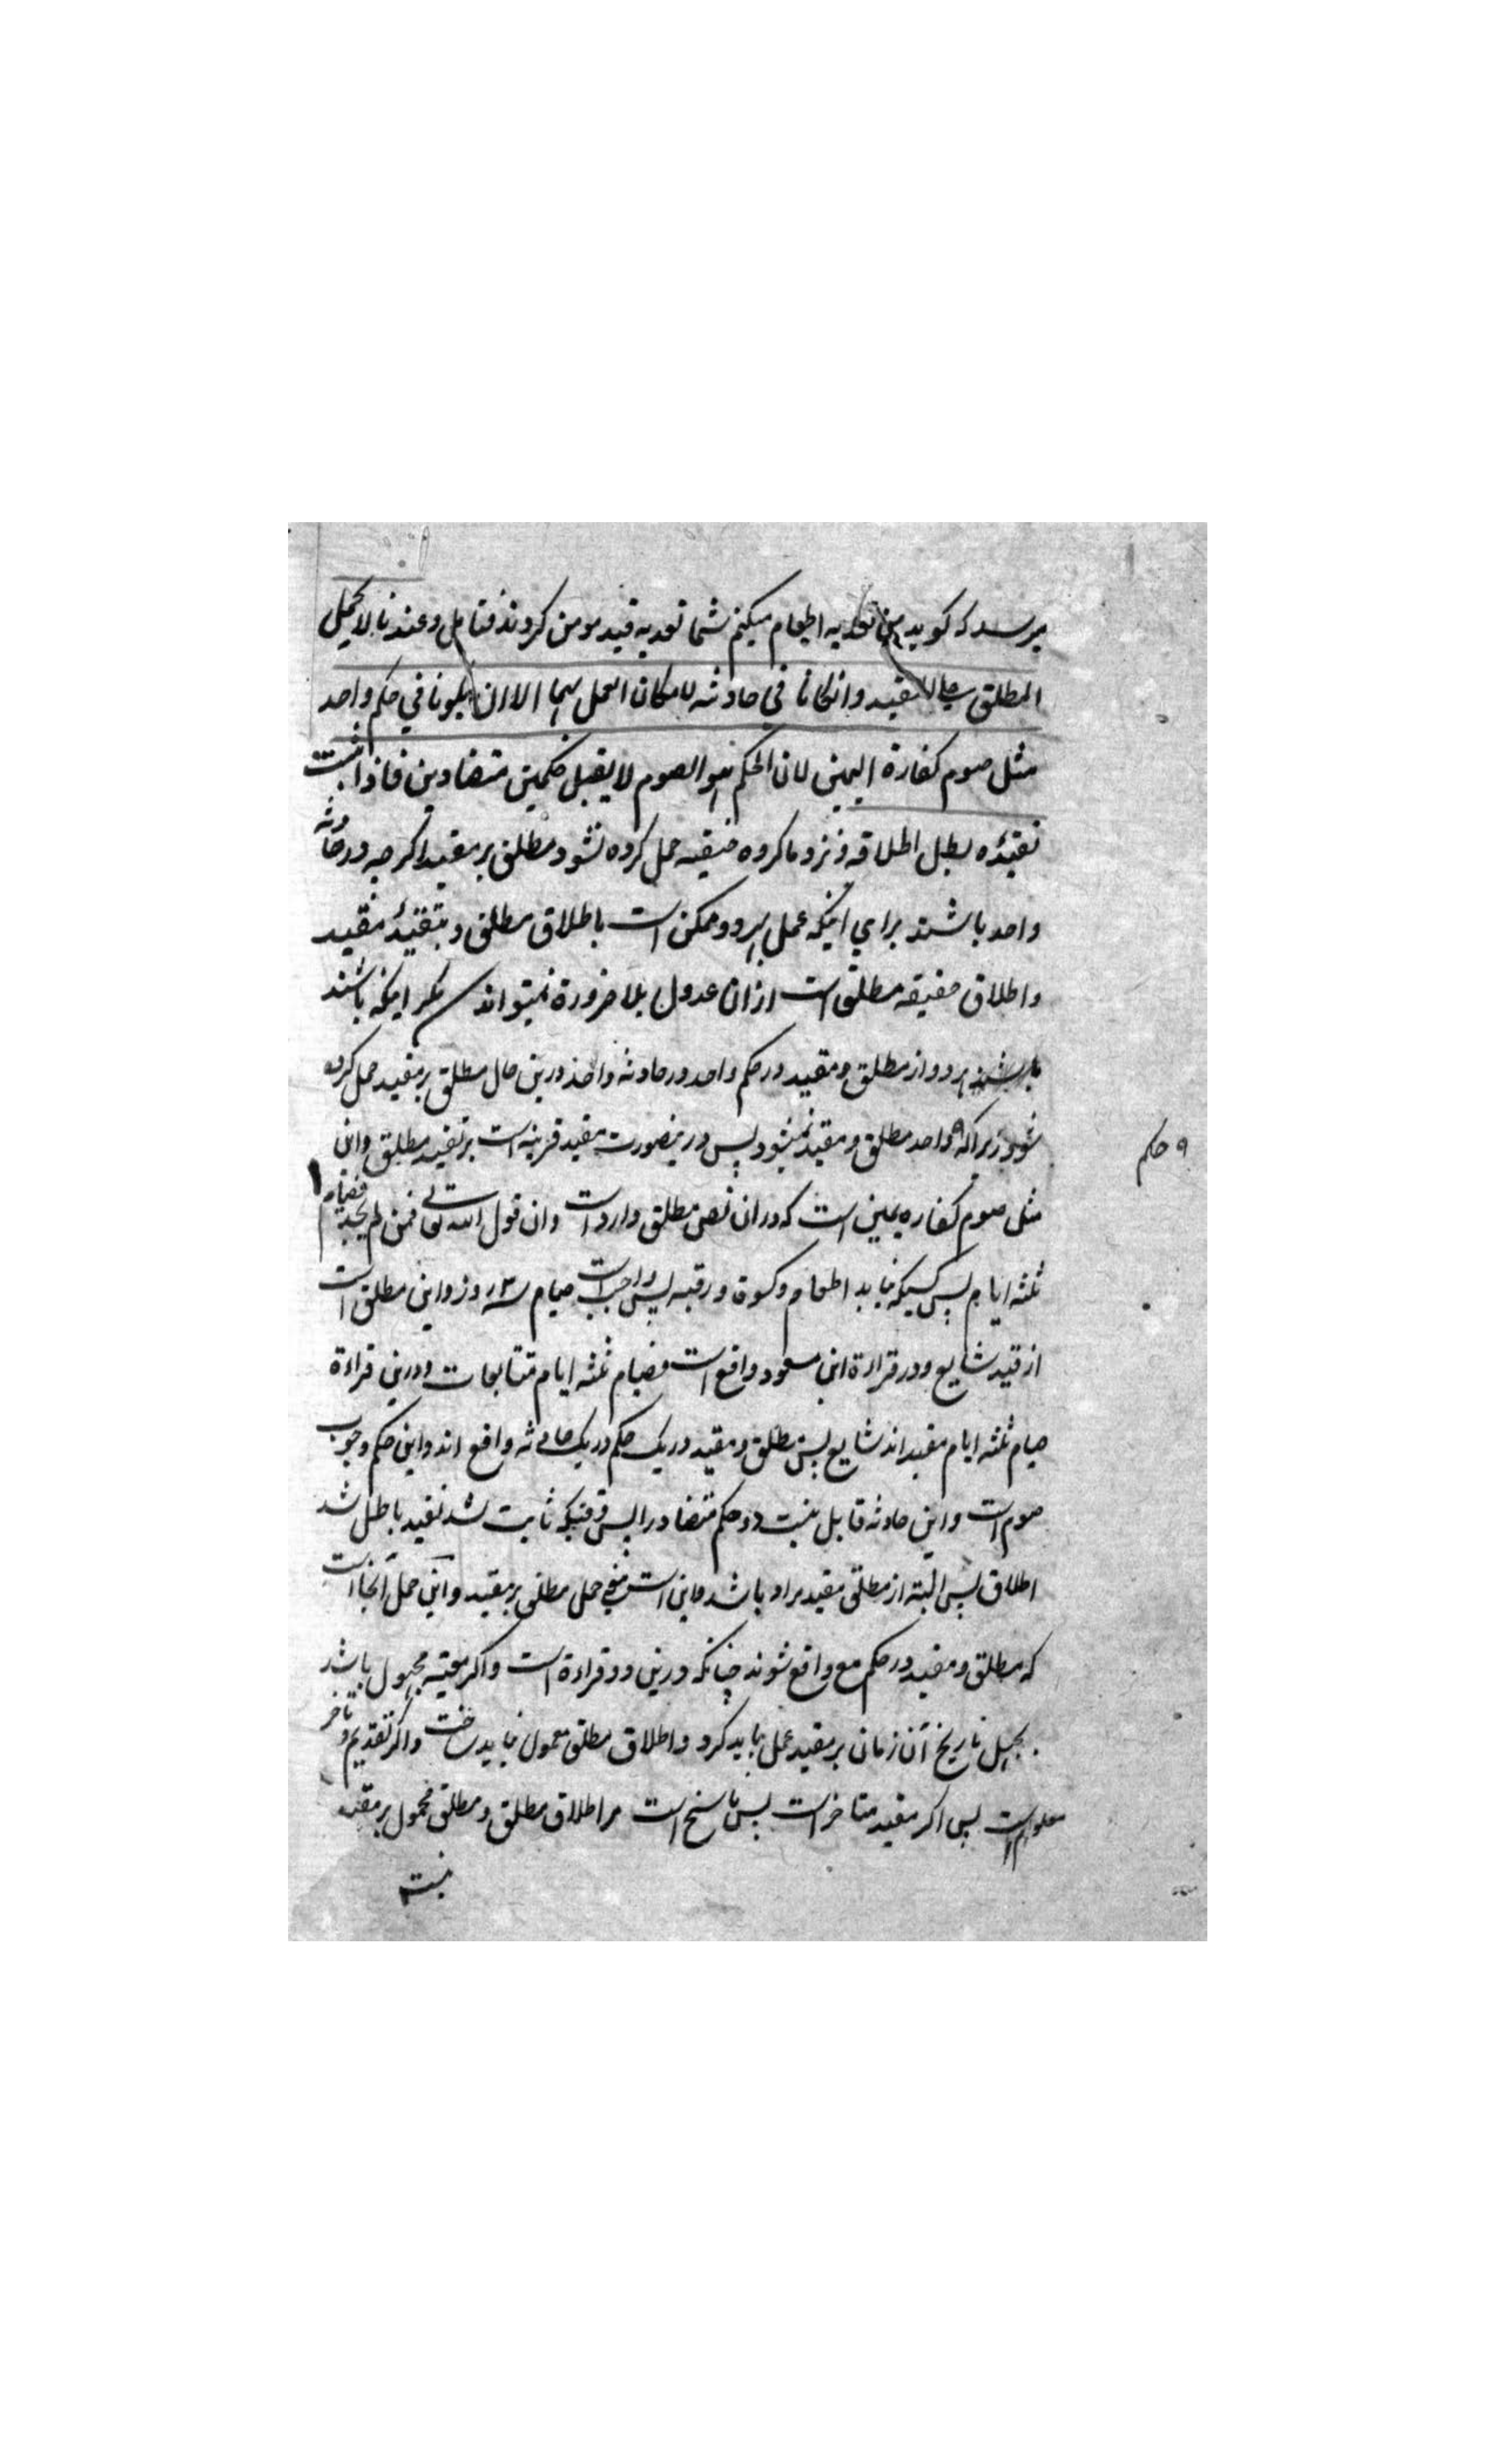 میرسد که گوید من تعدیه اطعام میکنم شما تعدیه قید مومن کردند فتامل وعندنا لا یحمل
المطلق علی المقید وان کانا فی حادثه لامکان العمل بهما الا ان یکونا فی حکم واحد
مثل صوم کفارة الیمین لان الحکم وهو الصوم لا یقبل حکمین متضادین فاذا ثبت
تقییده بطل اطلاقه ونزد ما کروه حنیفیه حمل کرده نشود مطلق بر مقید اگرچه در حادثه
واحد باشند برای اینکه عمل بهر دو ممکن است باطلاق مطلق و بتقیید مقید
واطلاق حقیقه مطلق است ازان عدول بلا ضرورة نمیتواند مگر اینکه باشند
هر دو از مطلق و مقید در حکم واحد در حادثه واحد درین حال مطلق بر مقید حمل کرده
شود زیرا که واحد مطلق و مقید نمیشود پس درینصورت مقید قرینه است بر تقیید مطلق واین
۹ حکم
مثل صوم کفاره یمین است که دران نص مطلق وارد است وان قول الله تعالی فمن لم یجد فصیام
ثلثه ایام پس کسیکه نیابد اطعام و کسوة و رقبه پس واجبست صیام سه روز واین مطلق است
از قید تتابع ودر قراءة ابن مسعود واقع است فصیام ثلثه ایام متتابعات ودرین قراءة
صیام ثلثه ایام مقید اند تتابع پس مطلق و مقید در یک حکم در یک حادثه واقع اند واین حکم وجوب
صوم است واین حادثه قابل نیست دو حکم متضاد را پس وقتیکه ثابت شد تقیید باطل شد
اطلاق پس البته از مطلق مقید مراد باشد واین است معنی حمل مطلق بر مقید واین حمل آنجا است
که مطلق و مقید در حکم مع واقع شوند چنانکه درین دو قراءة است واگر معیته مجهول باشد
بجهل تاریخ آن زمان بر مقید عمل باید کرد واطلاق مطلق معمول نباید ساخت واگر تقدیم و تاخر
معلوم است پس اگر مقید متاخر است پس ناسخ است مر اطلاق مطلق و مطلق محمول بر مقید
نیست